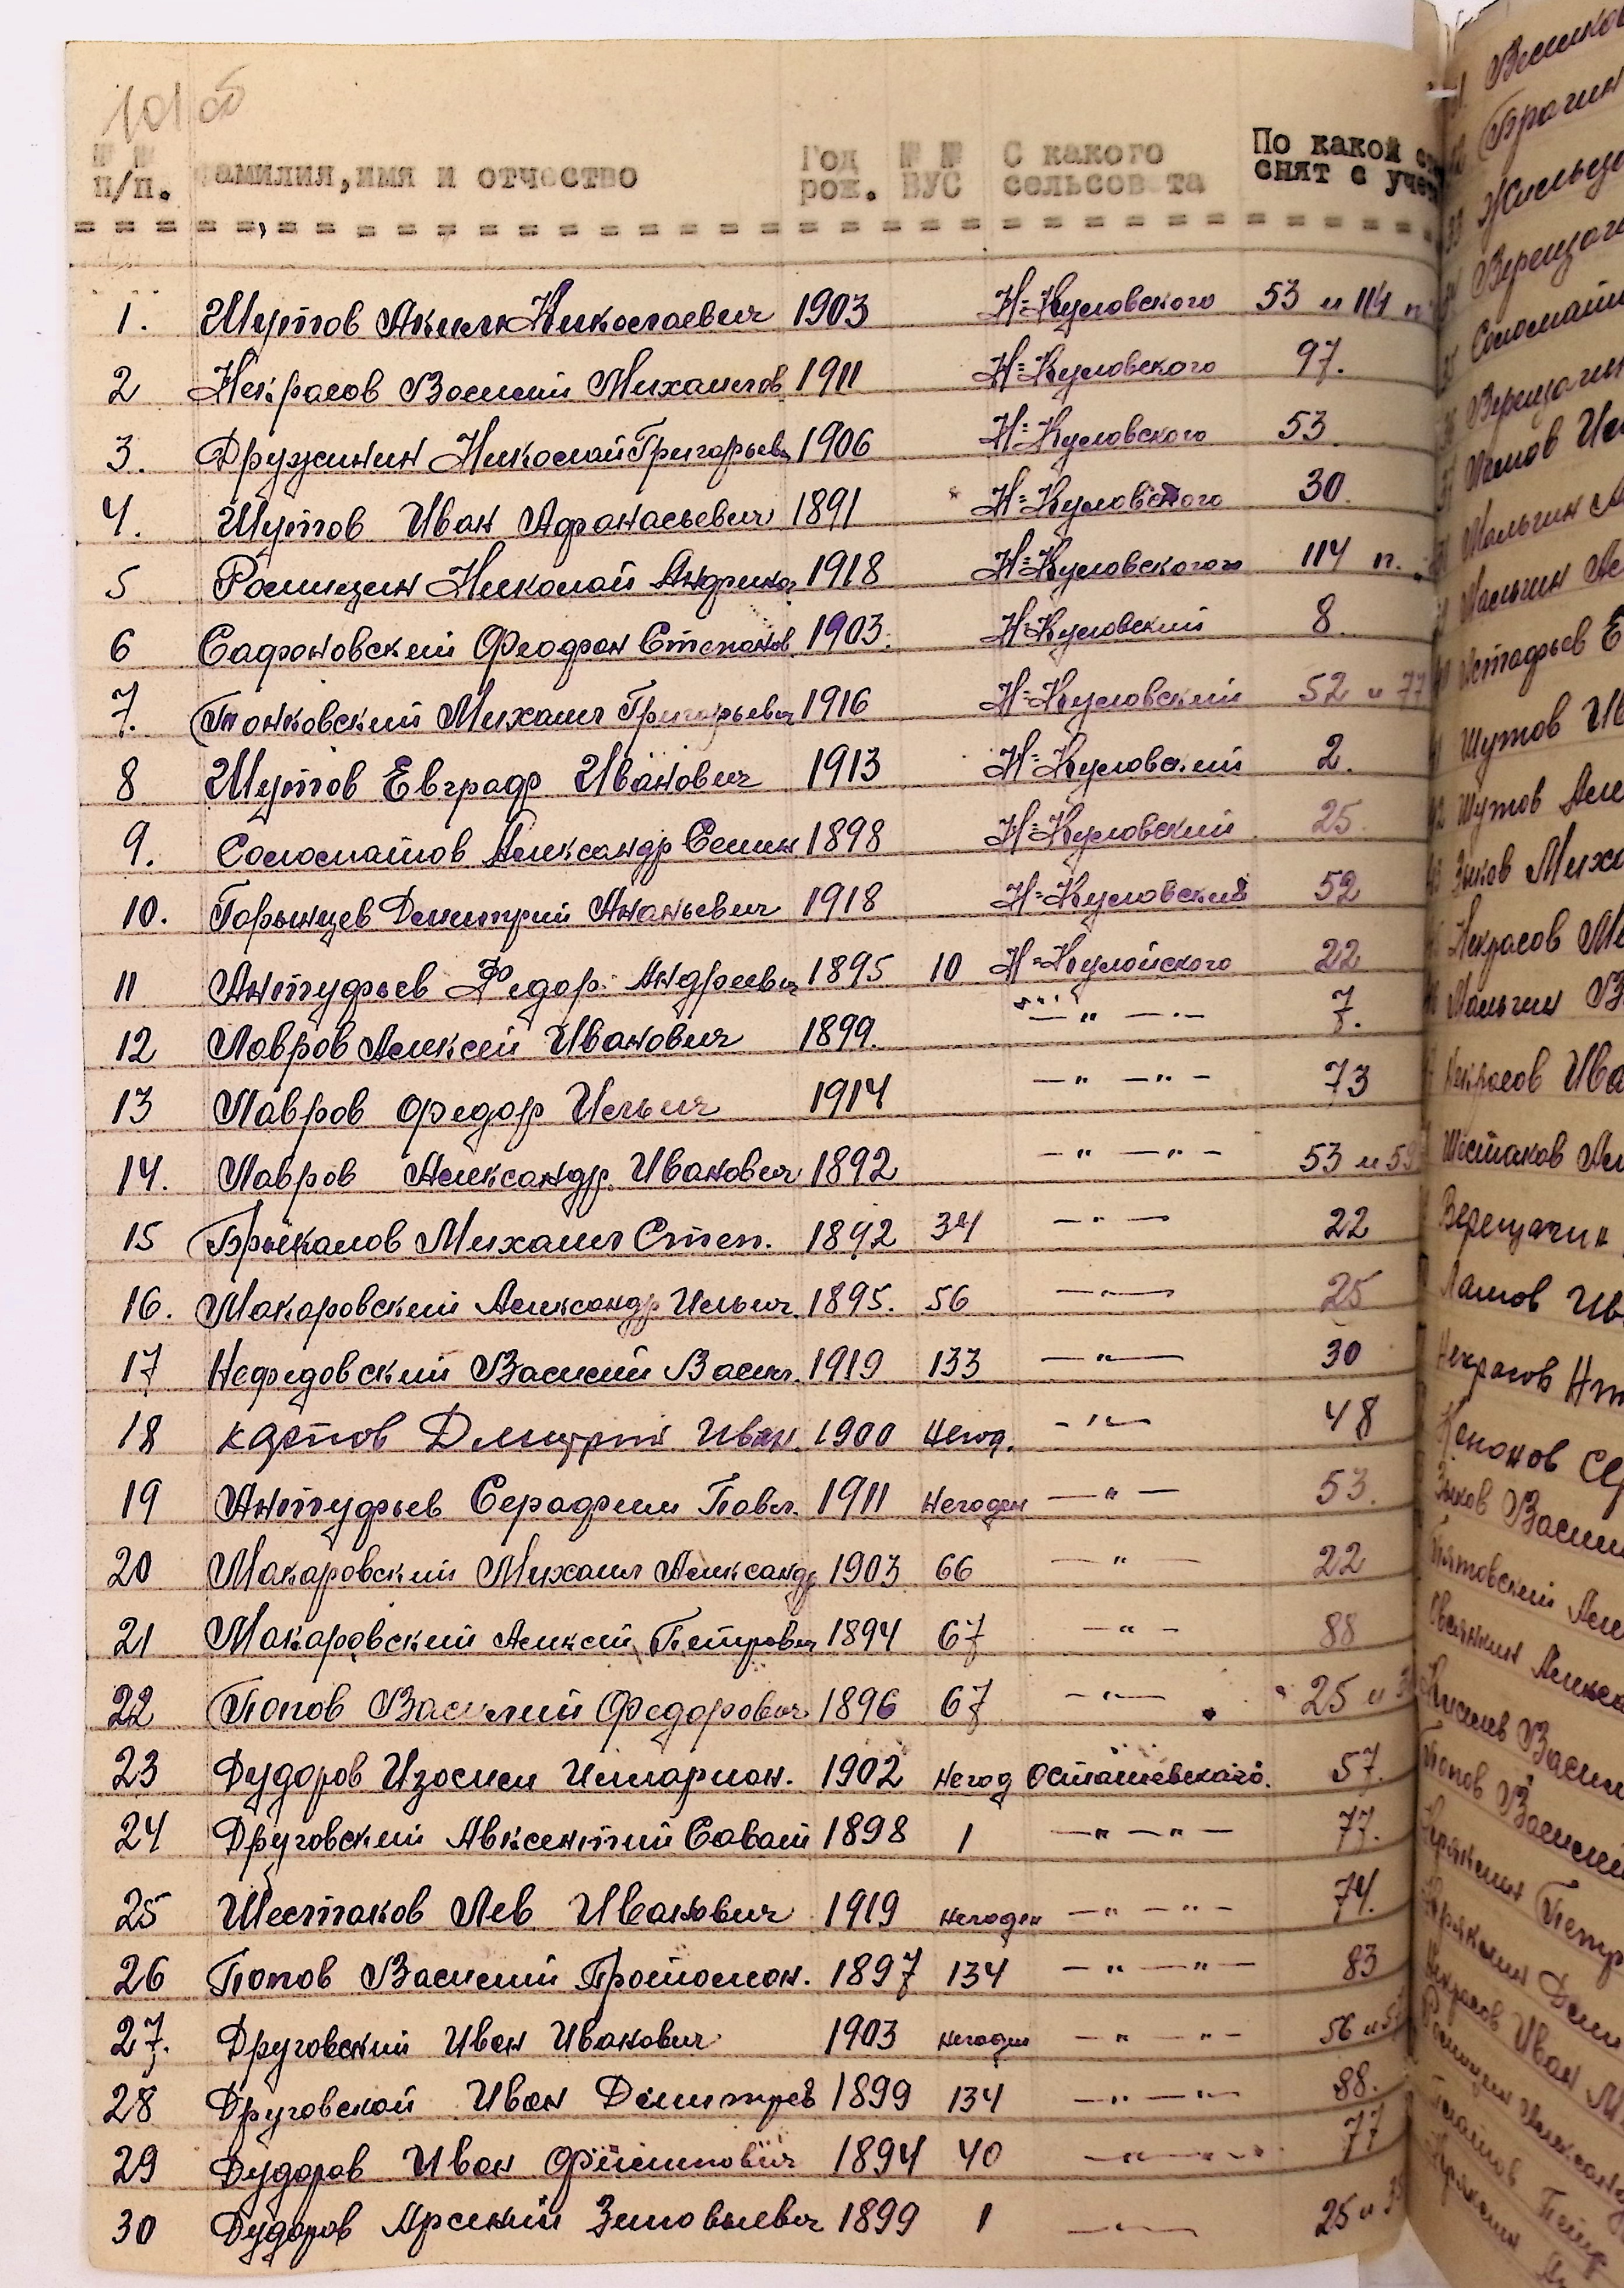 101 об
№ № фамилия, имя и отчество Год № № С какого По какой
п/п. рож. ВУС сельсовета снят с уче
1. Шутов Аким Николаевич 1903 Н-Куловского 53 и 114 п
2 Некрасов Василий Михайлов 1911 Н-Куловского 97.
3. Дружинин Николай Григорьев 1906 Н-Куловского 53.
4. Шутов Иван Афанасьевич 1891 Н-Куловского 30.
5 Ропищин Николай 1918 Н-Куловского 114 п.
6 Сафоновский Феофан Степанов. 1903. Н-Куловский 8.
7. Понковский Михаил Григорьевич 1916 Н-Куловский 52 и 77
8 Шутов Евграф Иванович 1913 Н-Куловский 2.
9. Соломатов Александр Семен 1898 Н-Куловский 25.
10. Горынцев Дмитрий Ананьевич 1918 Н-Куловский 52
11 Антуфьев Федор Андреевич 1895 10 Н-Кулойского 22
12 Лавров Алексей Иванович 1899. — " — 7.
13 Лавров Федор Ильич 1914 — " — " — 73
14. Лавров Александр Иванович 1892 — " — " — 53 и 53
15 Брыкалов Михаил Степ. 1892 34 — " — 22
16. Макаровский Александр Ильич. 1895. 56 — " — 25
17 Нефедовский Василий Васил. 1919 133 — " — 30
18 Дмитрий Иван. 1900 Негод. — " — 48
19 Антуфьев Серафим Павл. 1911 Негоден — " — 53.
20 Макаровский Михаил Александр 1903 66 — " — 22
21 Макаровский Алексей Петрович 1894 67 — " — 88
22 Попов Василий Федорович 1896 67 — " — 25 и 3
23 Дудоров Изосим Илларион. 1902 Негод Осташевского. 57.
24 Друговский Авксентий Савват 1898 1 — " — " — 77.
25 Шестаков Лев Иванович 1919 негоден — " — " — 74.
26 Попов Василий Протолион. 1897 134 — " — " — 83
27. Друговский Иван Иванович 1903 негоден — " — " — 56 и 5
28 Друговской Иван Дмитрев 1899 134 — " — " — 88.
29 Дудоров Иван Филиппович 1894 40 — " — " — 77
30 Дудоров Арсений Зиновьевич 1899 1 — " — 25 и 3
Брагин
Жильцо
Верещаги
Соломат
Верещагин
Мальгин А
Мальгин Ал
Шутов Ив
Шутов Але
Зыков Миха
Некрасов Ми
Мальгин В
Некрасов Ива
Шестаков Ал
Верещагин
Латов Ив
Некрасов
Кононов Се
Зыков Васил
Пятовский Але
Киселев Васил
Попов Васили
Некрасов Иван М